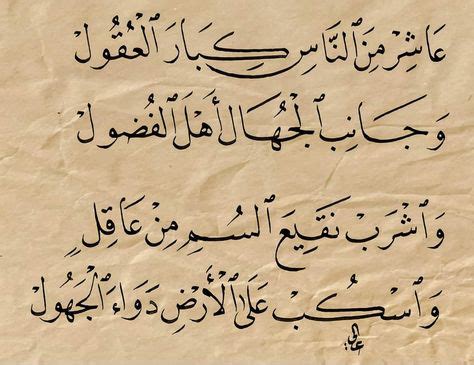 عَاشِرْ مِنَ ٱلنَّاسِ كِبَارَ ٱلْعُقُولْ
وَجَانِبِ ٱلْجُهَّالَ أَهْلَ ٱلْفُضُولْ
وَٱشْرَبْ نَقِيعَ ٱلسُّمِّ مِنْ عَاقِلٍ
وَٱسْكُبْ عَلَى ٱلْأَرْضِ دَوَاءَ ٱلْجَهُولْ